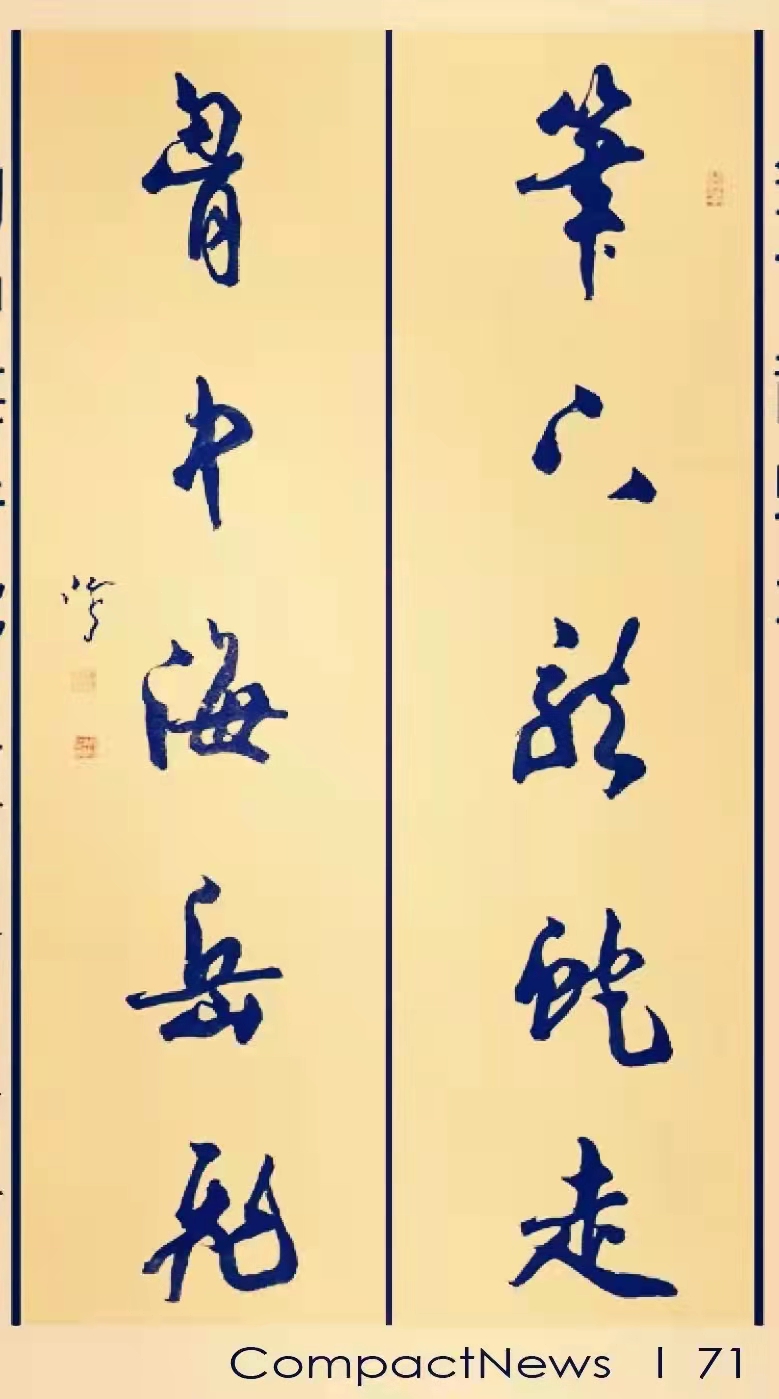 筆下龍蛇走
胷中海岳飛
CompactNews | 71